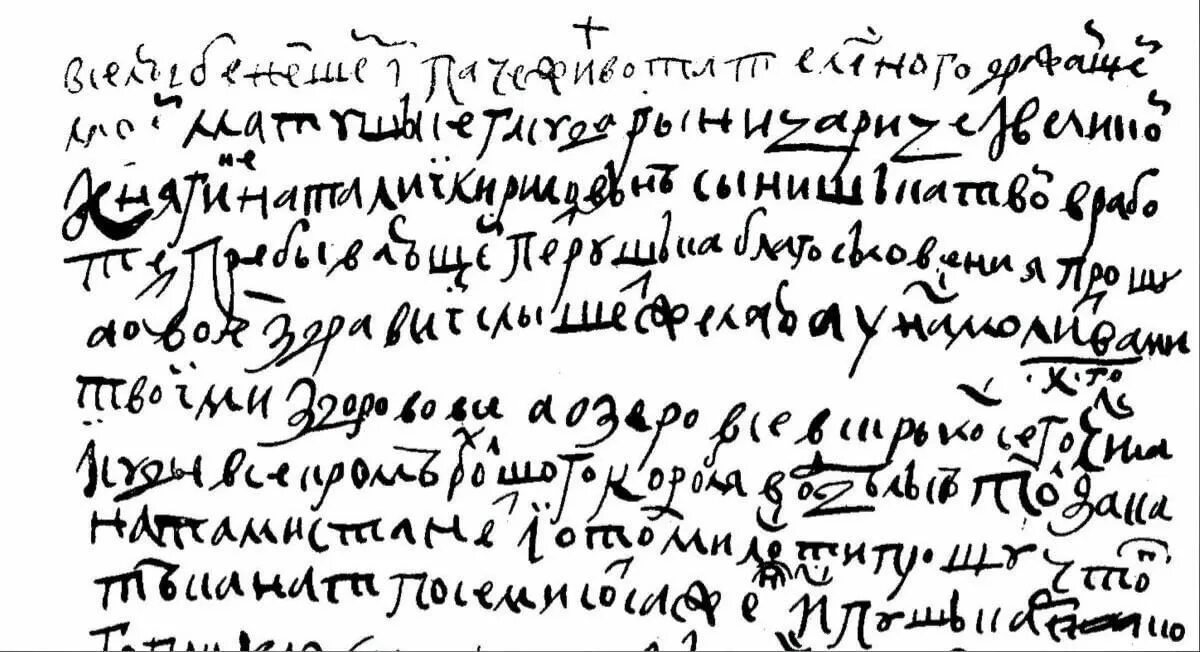 +
вселюбезнеише i паче живота телеснаго дражаишеи
моеи матушъке гсдарыни царице i великои
княгине наталиi кириловънѣ сынишъка твои в рабо
те пребывающеи петрушъка благословения прошу
а о твоем здравиi слышеть желаю а у нас молитвами
твоiми здорово все а озеро все вскрылось сего числа
i суды все кромѣ болшого корабля в оддѣлкѣ за кана
натами станет i о том милости прошу чтоп
тѣ канаты по семисот сажен ис пушъка